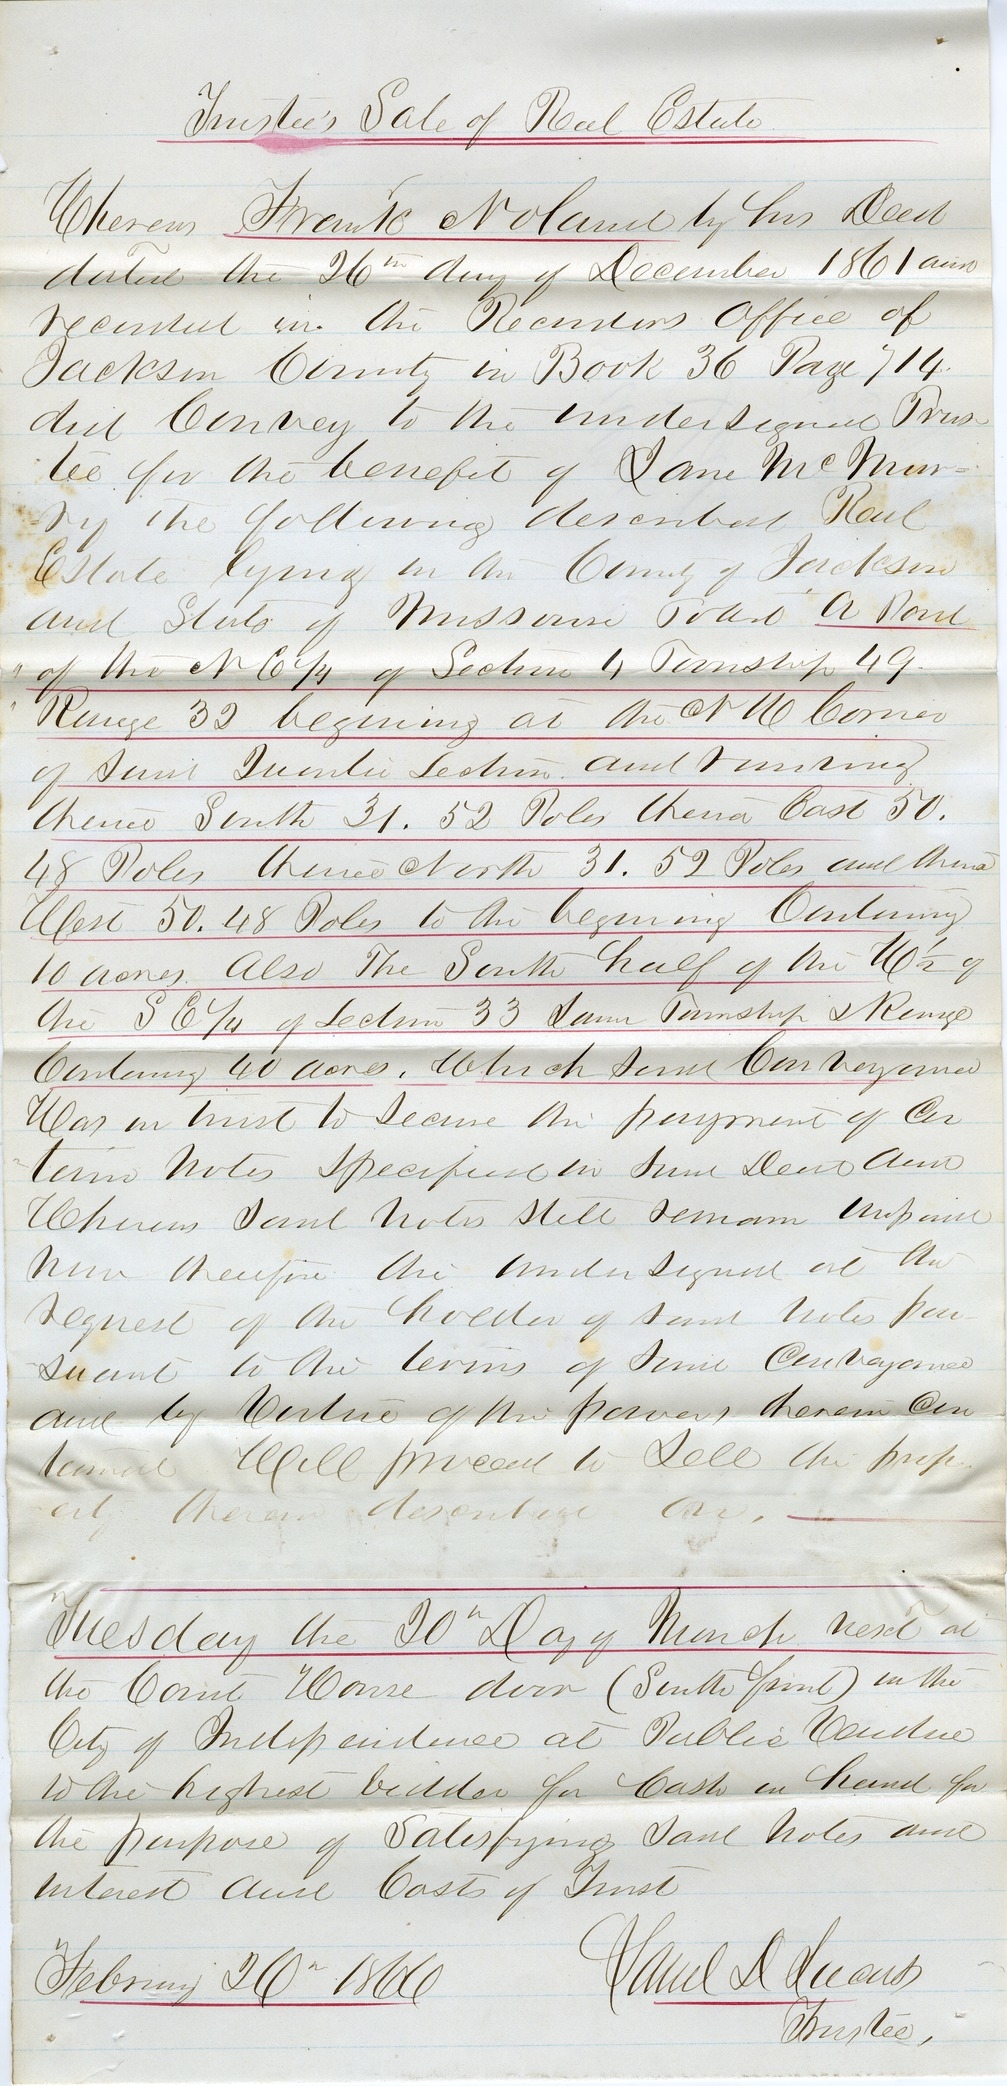 Trustee's Sale of Real Estate
Whereas Frank Noland by his Deed
dated the 26th day of December 1861 and
recorded in the Recorders Office of
Jackson County in Book 36 Page 714.
did Convey to the undersigned Trus-
tee for the benefit of Jane McMur-
ry the following described Real
Estate lying in the County of Jackson
and State of Missouri To Wit A Part
of the N E 1/4 of Section 4 Township 49.
Range 32 begining at the N W Corner
of said Quarter Section and running
thence South 31. 52 Poles thence East 50.
48 Poles thence North 31. 52 Poles and thence
West 50. 48 Poles to the begining Containing
10 acres. Also The South half of the W 1/2 of
the S E 1/4 of Section 33 Same Township & Range
Containing 40 acres. Which said Conveyance
Was in trust to secure the payment of Cer
tain Notes specified in said Deed And
Whereas said Notes still remain unpaid
now therefore the undersigned at the
request of the holder of said Notes pur-
suant to the terms of said Conveyance
and by Virtue of the powers therein Con
tained Will proceed to Sell the prop
erty therein described on.
Tuesday the 20th Day of March next at
the Court House door (South front) in the
City of Independence at Public Vendue
to the highest bidder for Cash in hand for
the purpose of Satisfying said Notes and
interest and Costs of Trust
February 26th 1866 Saml D Lucas
Trustee,